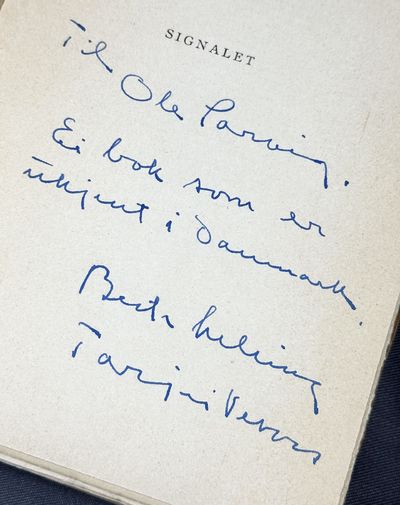 SIGNALET
Til
Ole Sarvig.
Ei bok som er
ukjent i Danmark.
Beste helsing
Tarjei Vesaas